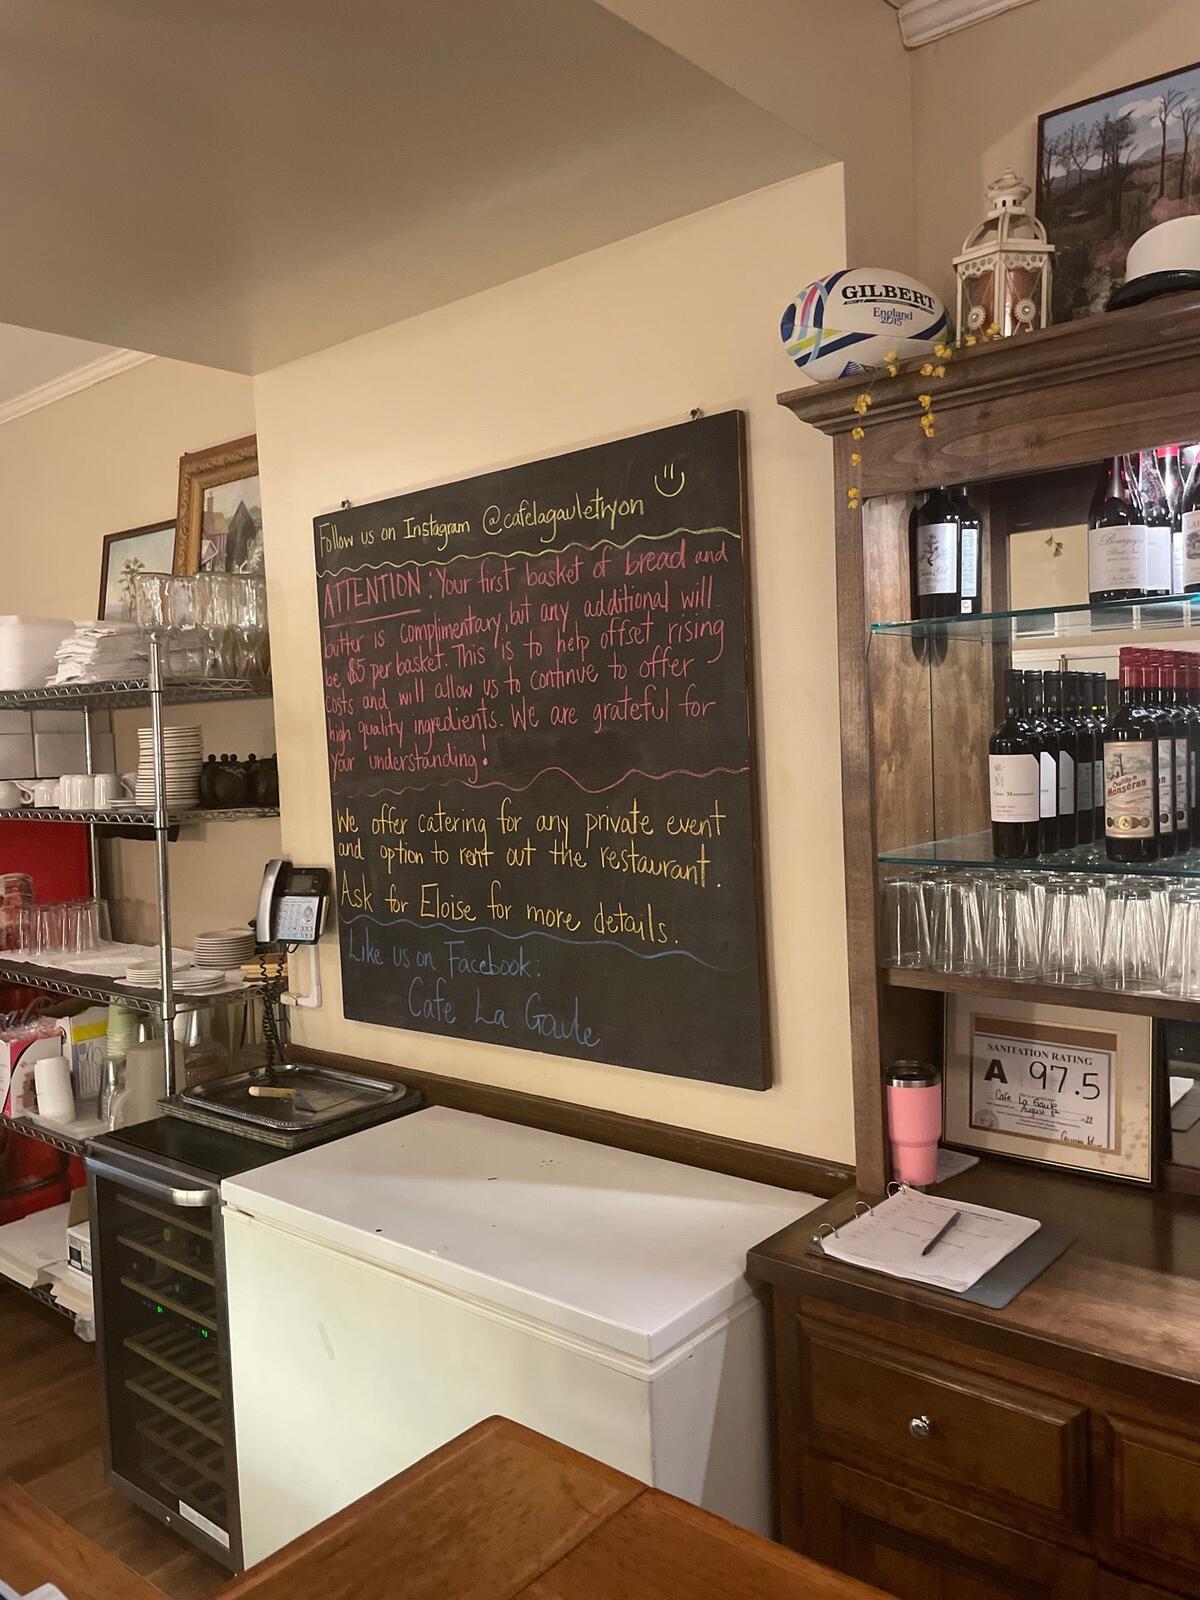 Follow us on Instagram @cafelagauletryon
ATTENTION: Your first basket of bread and
butter is complimentary, but any additional will
be $5 per basket. This is to help offset rising
costs and will allow us to continue to offer
high quality ingredients. We are grateful for
your understanding!
We offer catering for any private event
and option to rent out the restaurant.
Ask for Eloise for more details.
Like us on Facebook:
Cafe La Gaule
GILBERT
England
2015
Bourgogne
Monséran
SANITATION RATING
A 97.5
Cafe La Gaule
August 8th 22